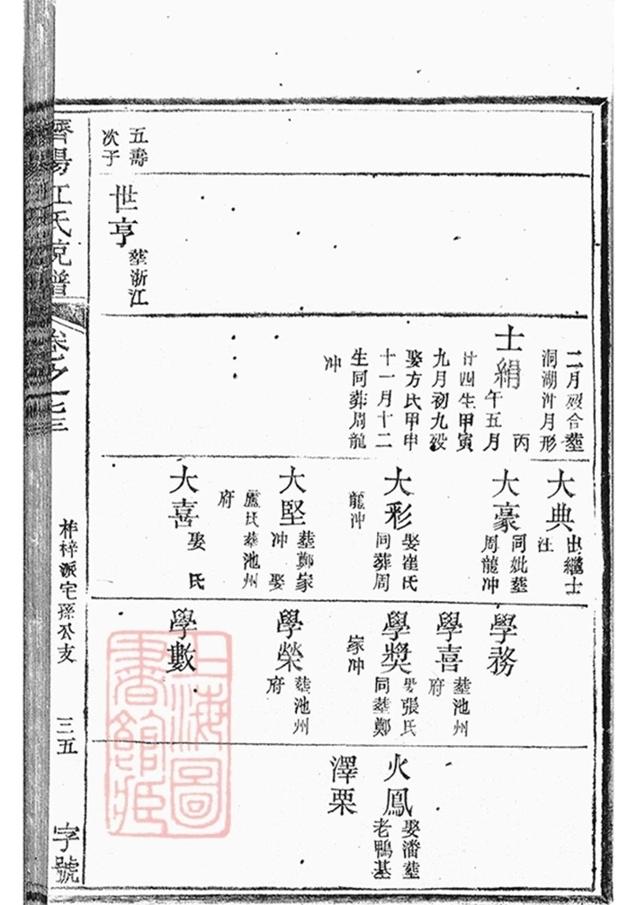 五壽
次子
世亨
塟浙江
二月歿合塟
洞湖汁月形
士絹
丙
午五月
廿四生甲寅
九月初九歿
娶方氏甲申
十一月十二
生同葬周龍
冲
大典
出繼士
注
大豪
同妣塟
周龍冲
大彩
娶崔氏
同葬周
龍冲
大堅
塟鄭家
冲 娶
盧氏塟池州
府
大喜
娶 氏
學務
學喜
塟池州
府
學獎
娶張氏
同塟鄭
家冲
學榮
塟池州
府
學數
火鳳
娶潘塟
老鴨基
澤栗
濟陽江氏宗譜
卷之
柞梓派宅孫公支
三五
字號
上海圖
書館藏